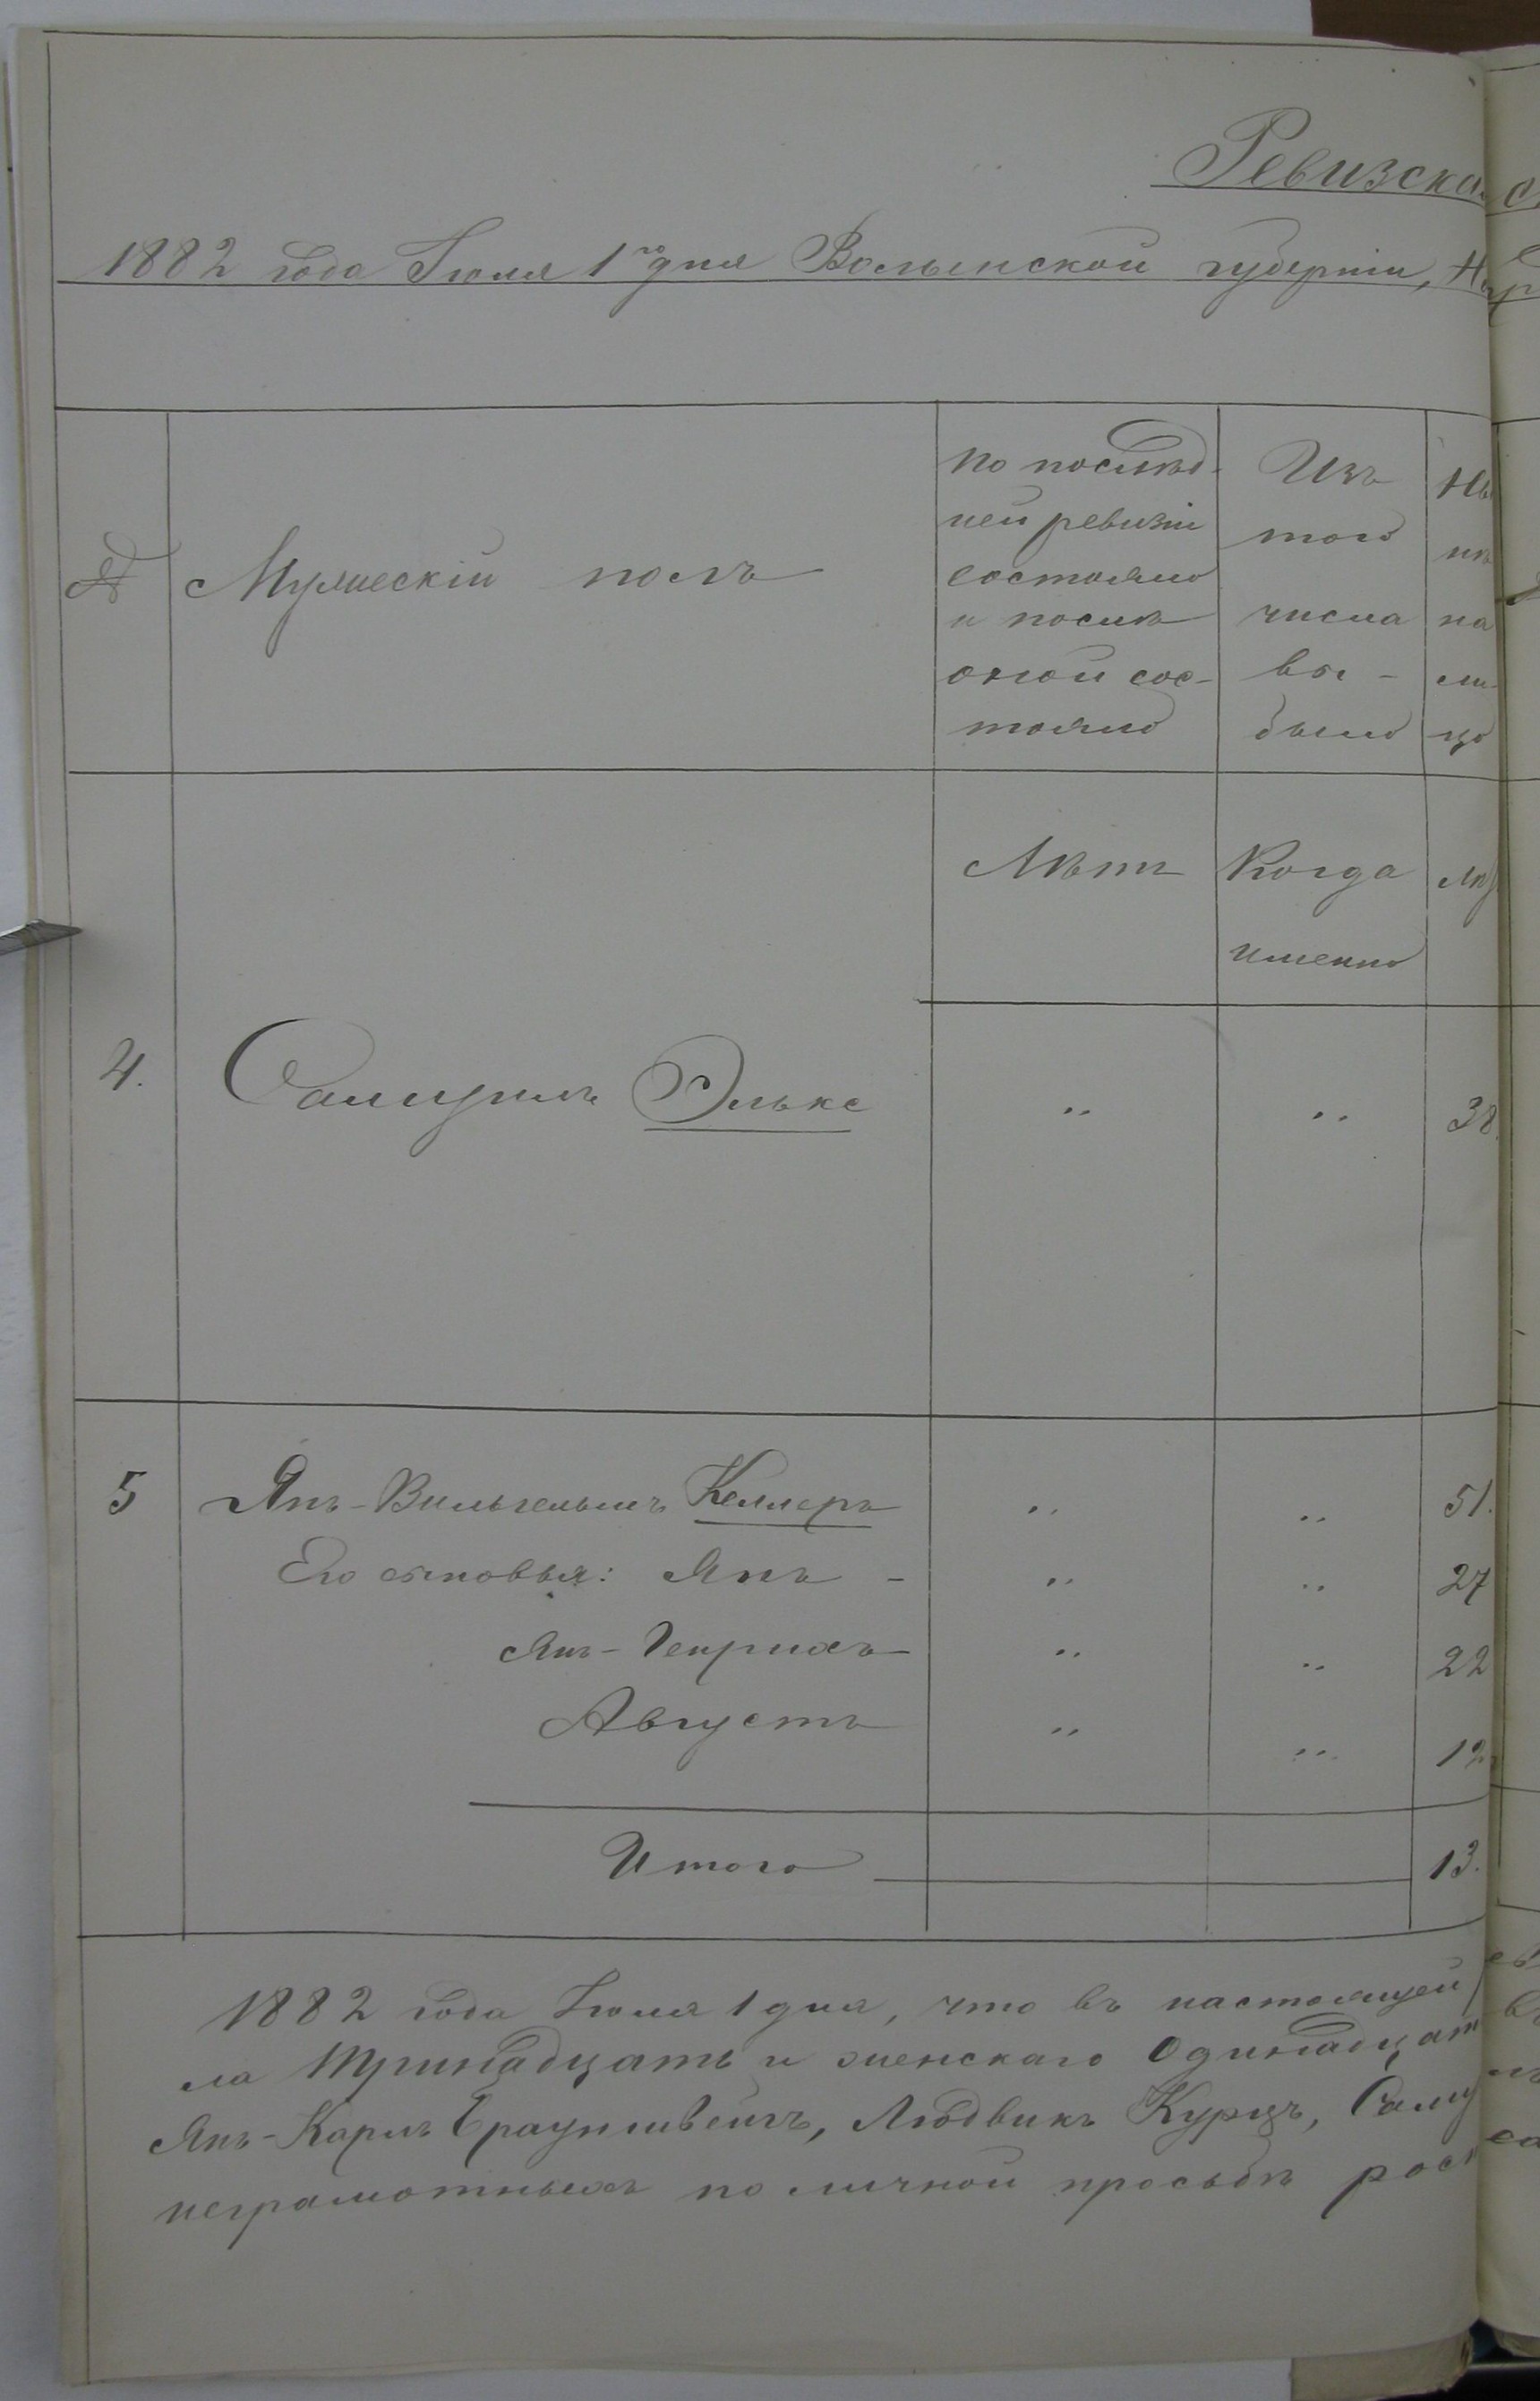 Ревизская
1882 года Іюля 1го дня Волынской губерніи, Н
№ Мужескій полъ
По послѣд-
ней ревизіи
состояло
и послѣ
оной сос-
тояло
Изъ
того
числа
вы-
было
Ны
нѣ
на
ли-
цо
Лѣтъ
Когда
именно
Лѣ
4. Самуилъ Эльке " " 38.
5 Янъ-Вильгельмъ Келлеръ " " 51.
Его сыновья: Янъ - " " 27
Янъ-Генрихъ " " 22
Августъ " " 12
Итого 13.
1882 года Іюля 1 дня, что въ настоящей
ла тринадцать и женскаго одинадцат
Янъ-Карлъ Брауншвейгъ, Людвикъ Курцъ, Саму
неграмотныхъ по личной просьбѣ рос